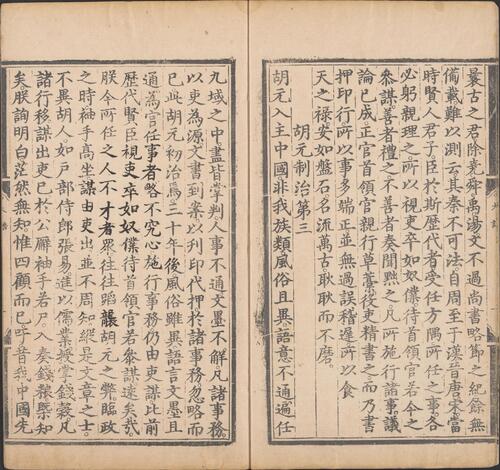 曩古之君除堯舜禹湯文不過尚書略節之紀餘無
備載難以測云其秦不可法自周至于漢晉唐宋當
時賢人君子臣於斯歷代者受任方隅所任之事各
必躬親理之所以視吏卒如奴僕待首領官若今之
叅謀善者禮之不善者奏聞黜之凡所施行諸事議
論已成正官首領官親行草藁後吏精書之而乃書
押印行所以事多端正並無過誤稽遲所以食
天之祿安如盤石名流萬古耿耿而不磨
胡元制治第三
胡元入主中國非我族類風俗且異語意不通遍任
九域之中盡皆掌判人事不通文墨不解凡諸事務
以吏為源文書到案以刋印代押於諸事務忽略而
已此胡元初治為三十年後風俗雖異語言文墨且
通為官任事者略不究心施行事務仍由吏謀比前
歷代賢臣視吏卒如奴僕待首領官若叅謀遠矣哉
朕今所任之人不才者衆往往蹈襲胡元之弊臨政
之時袖手高坐謀由吏出並不周知縱是文章之士
不異胡人如户部侍郎張易進以儒業授掌錢穀凡
諸行移謀出吏已於公廨袖手若尸入奏錢糧槩知
矣朕詢明白茫然無知惟四顧而已吁昔我中國先